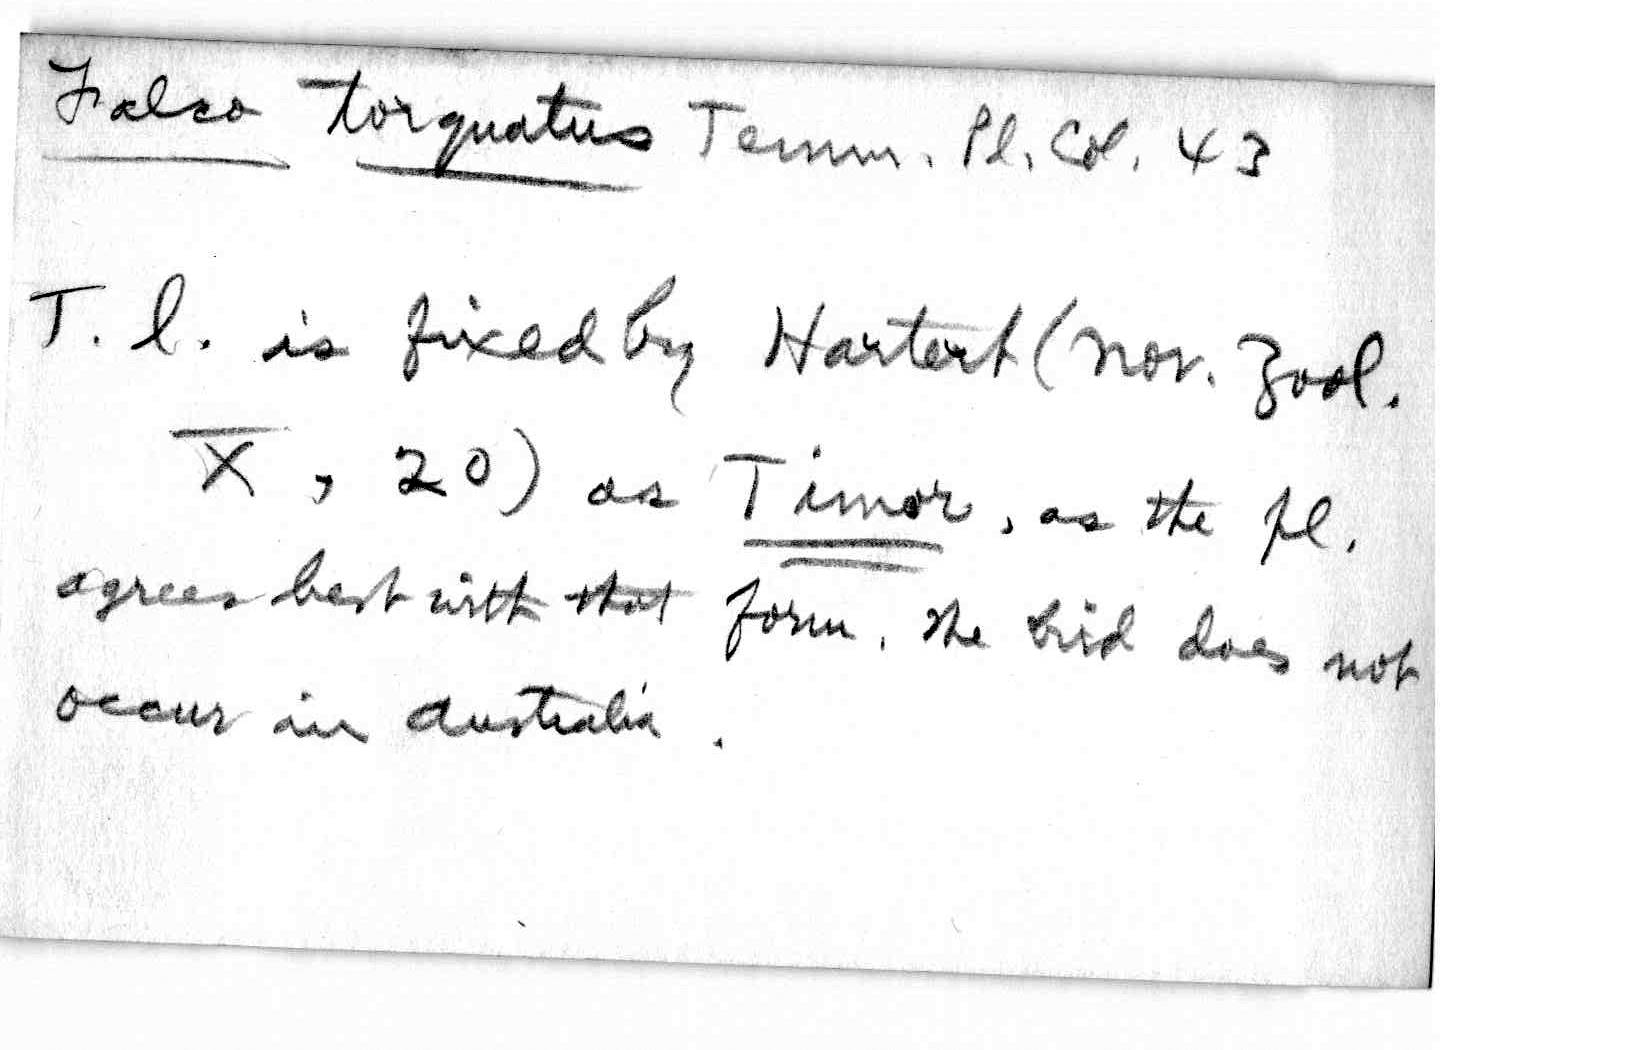 Falco torquatus Temm. Pl. Col. 43
T. l. is fixed by Hartert (Nov. Zool.
X, 20) as Timor, as the pl.
agrees best with that form. The bird does not
occur in Australia.